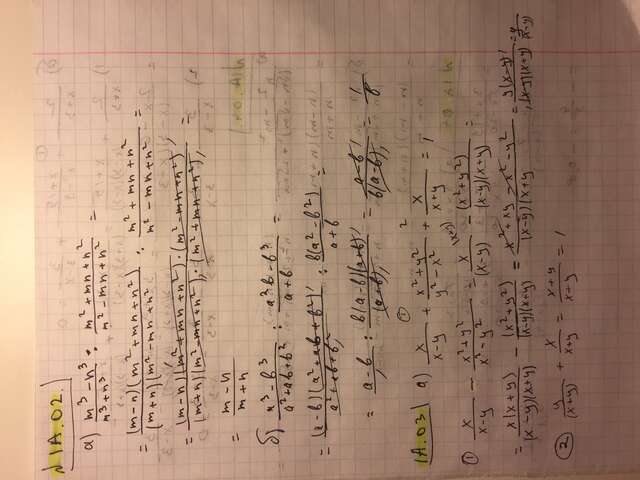 № 1А.02.
а) (m³ − n³)/(m³ + n³) : (m² + mn + n²)/(m² − mn + n²) =
= (m−n)(m² + mn + n²)/(m+n)(m² − mn + n²) : (m² + mn + n²)/(m² − mn + n²) =
= (m−n)(m² + mn + n²) · (m² − mn + n²)/(m+n)(m² − mn + n²) · (m² + mn + n²) =
= (m − n)/(m + n)
б) (a³ − b³)/(a² + ab + b²) : (a³b − b³)/(a + b) =
= (a−b)(a² + ab + b²)/(a² + ab + b²) : b(a² − b²)/(a + b) =
= (a − b)/1 : b(a−b)(a+b)/(a+b) = (a − b)/b(a−b) = 1/b
1А.03 а) x/(x−y) + (x² + y²)/(y² − x²) + x/(x+y) = 1
① x/(x−y) − (x² + y²)/(x² − y²) = x (x+y)/(x−y) − (x² + y²)/(x−y)(x+y) =
= x(x+y)/(x−y)(x+y) − (x² + y²)/(x−y)(x+y) = (x² + xy − x² − y²)/(x−y)(x+y) = y(x−y)/(x−y)(x+y) = y/(x−y)
② y/(x+y) + x/(x+y) = (x+y)/(x+y) = 1